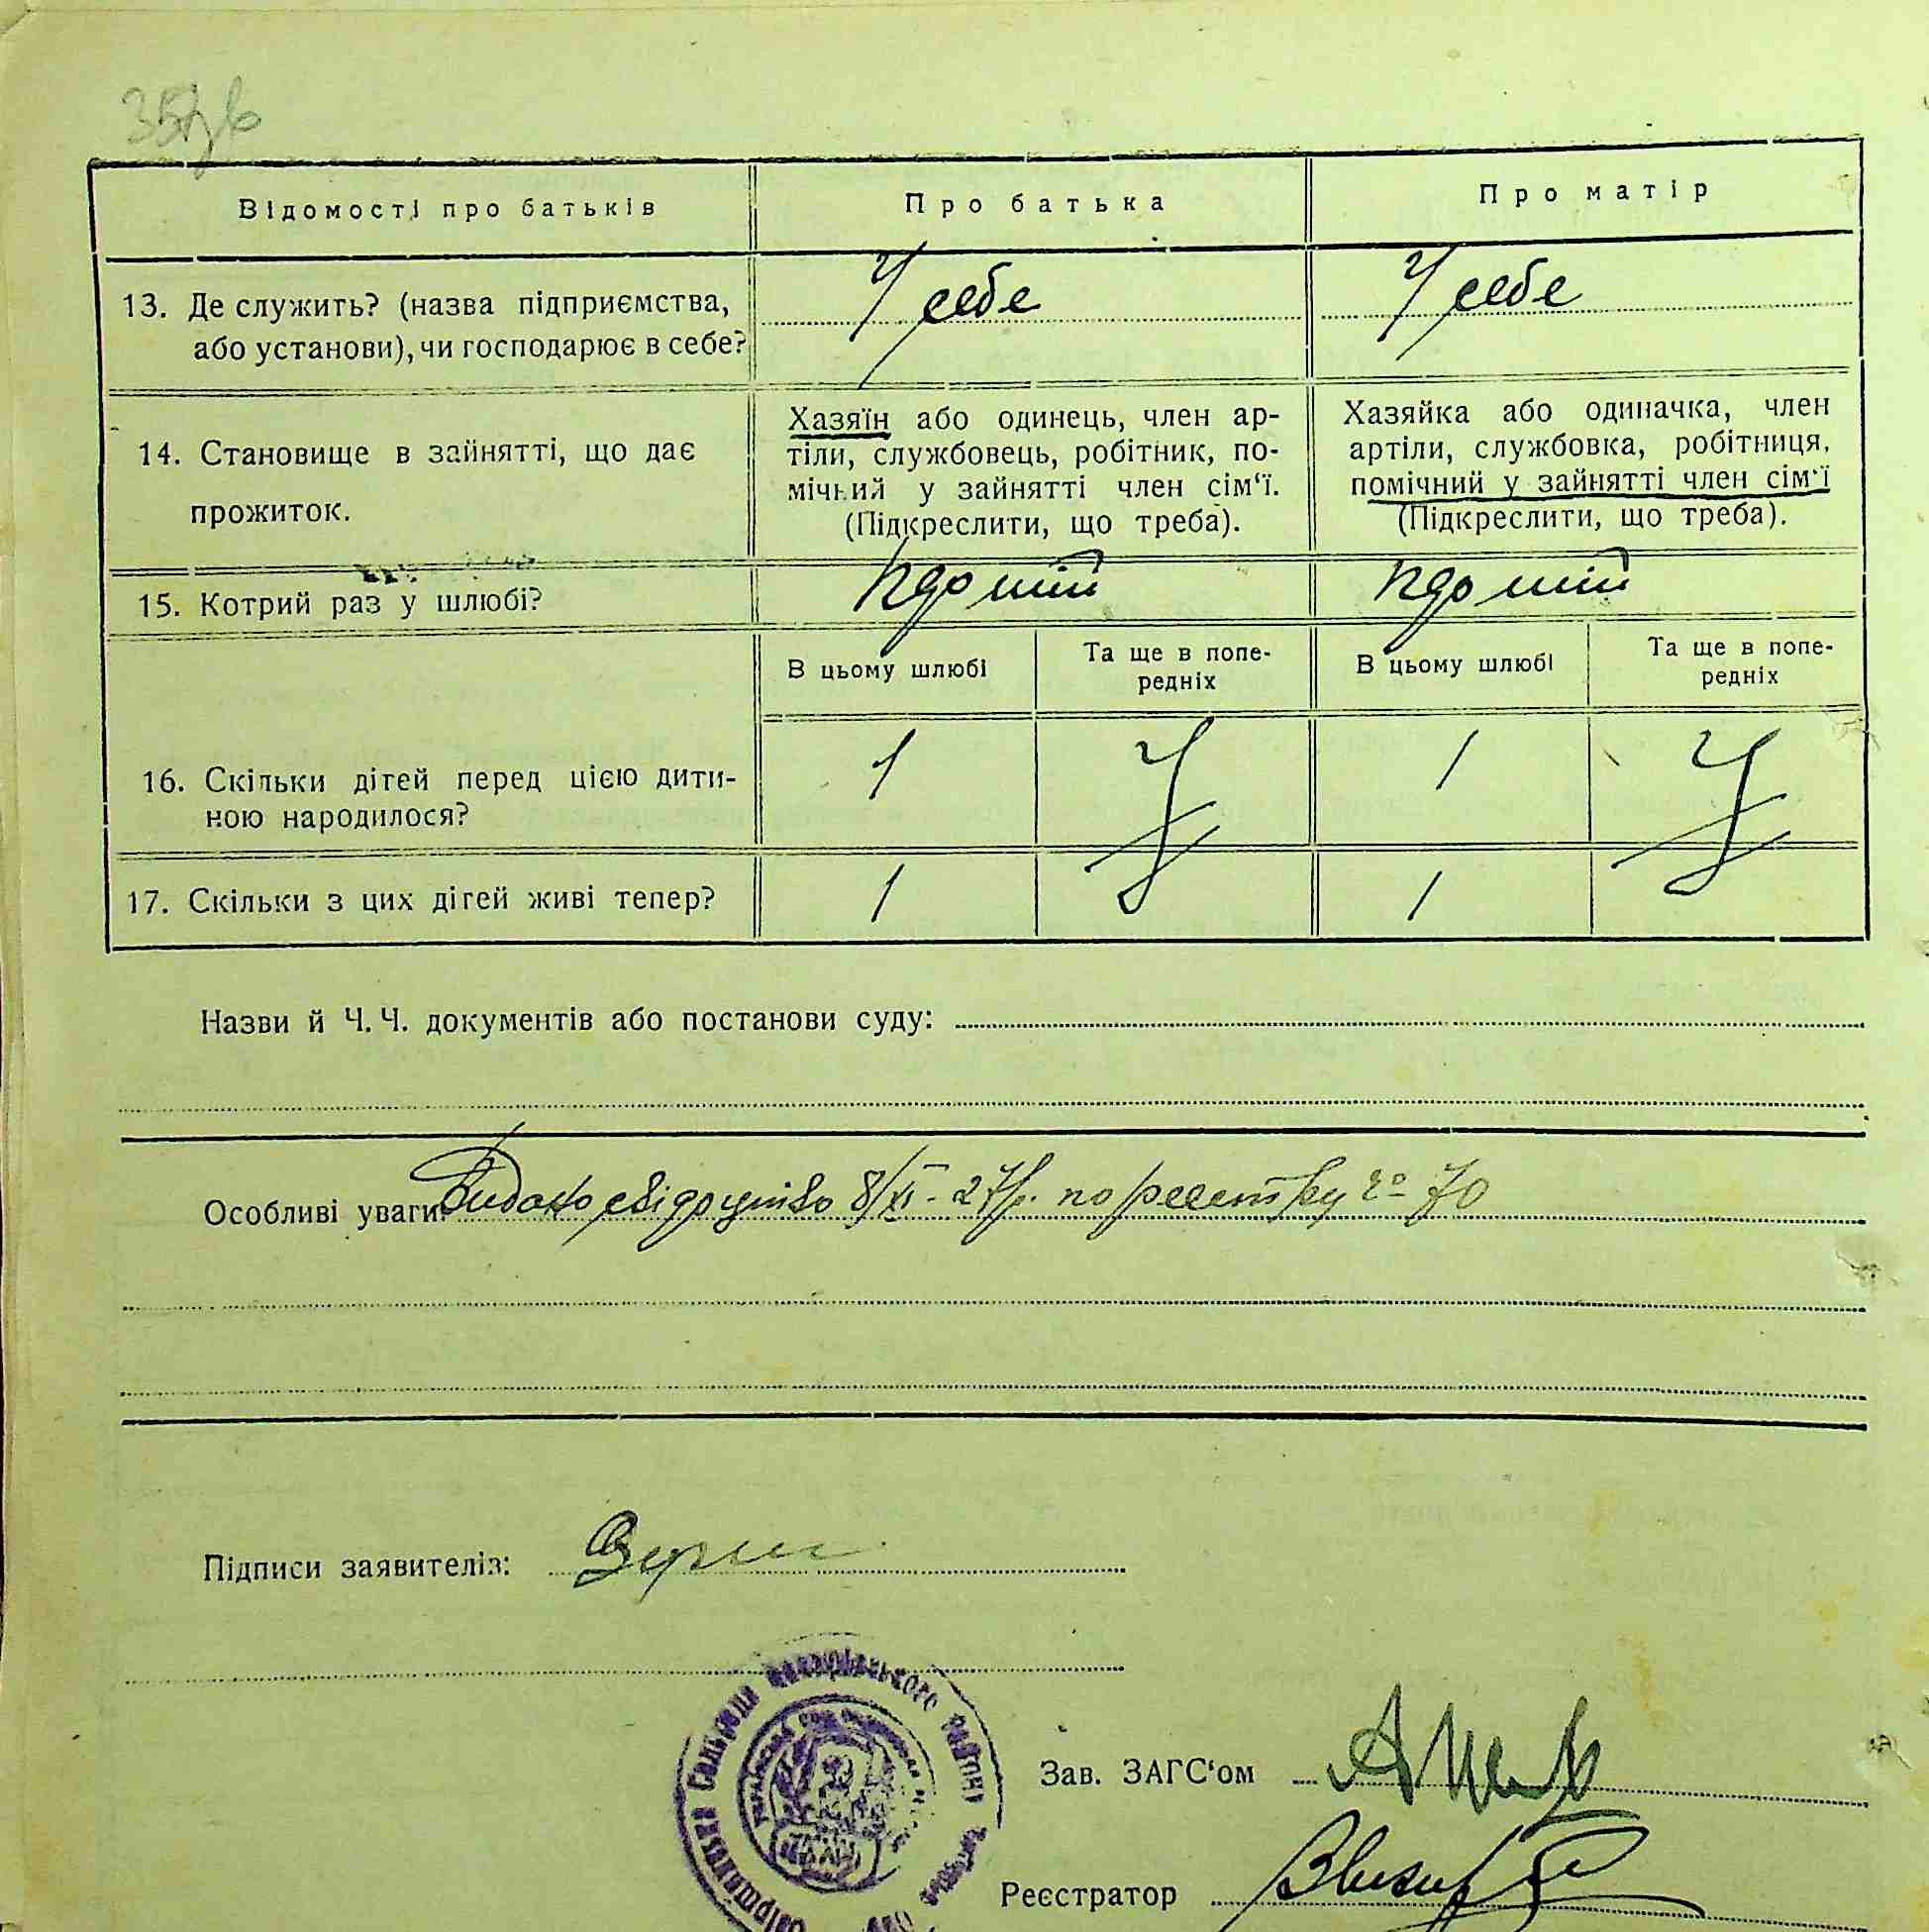 Відомості про батьків
Про батька
Про матір
13. Де служить? (назва підприємства,
або установи), чи господарює в себе?
У себе
У себе
14. Становище в зайнятті, що дає
прожиток.
Хазяїн або одинець, член ар-
тіли, службовець, робітник, по-
мічний у зайнятті член сім‘ї.
(Підкреслити, що треба).
Хазяйка або одиначка, член
артіли, службовка, робітниця,
помічний у зайнятті член сім‘ї
(Підкреслити, що треба).
15. Котрий раз у шлюбі?
В цьому шлюбі
Та ще в попе-
редніх
В цьому шлюбі
Та ще в попе-
редніх
16. Скільки дітей перед цією дити-
ною народилося?
1
1
17. Скільки з цих дітей живі тепер?
1
1
Назви й Ч. Ч. документів або постанови суду:
Особливі уваги: Видано свідоцтво 8/XI - 27р. по реестру № 70
Підписи заявителів:
Сільрада
району
Зав. ЗАГС‘ом
Реєстратор